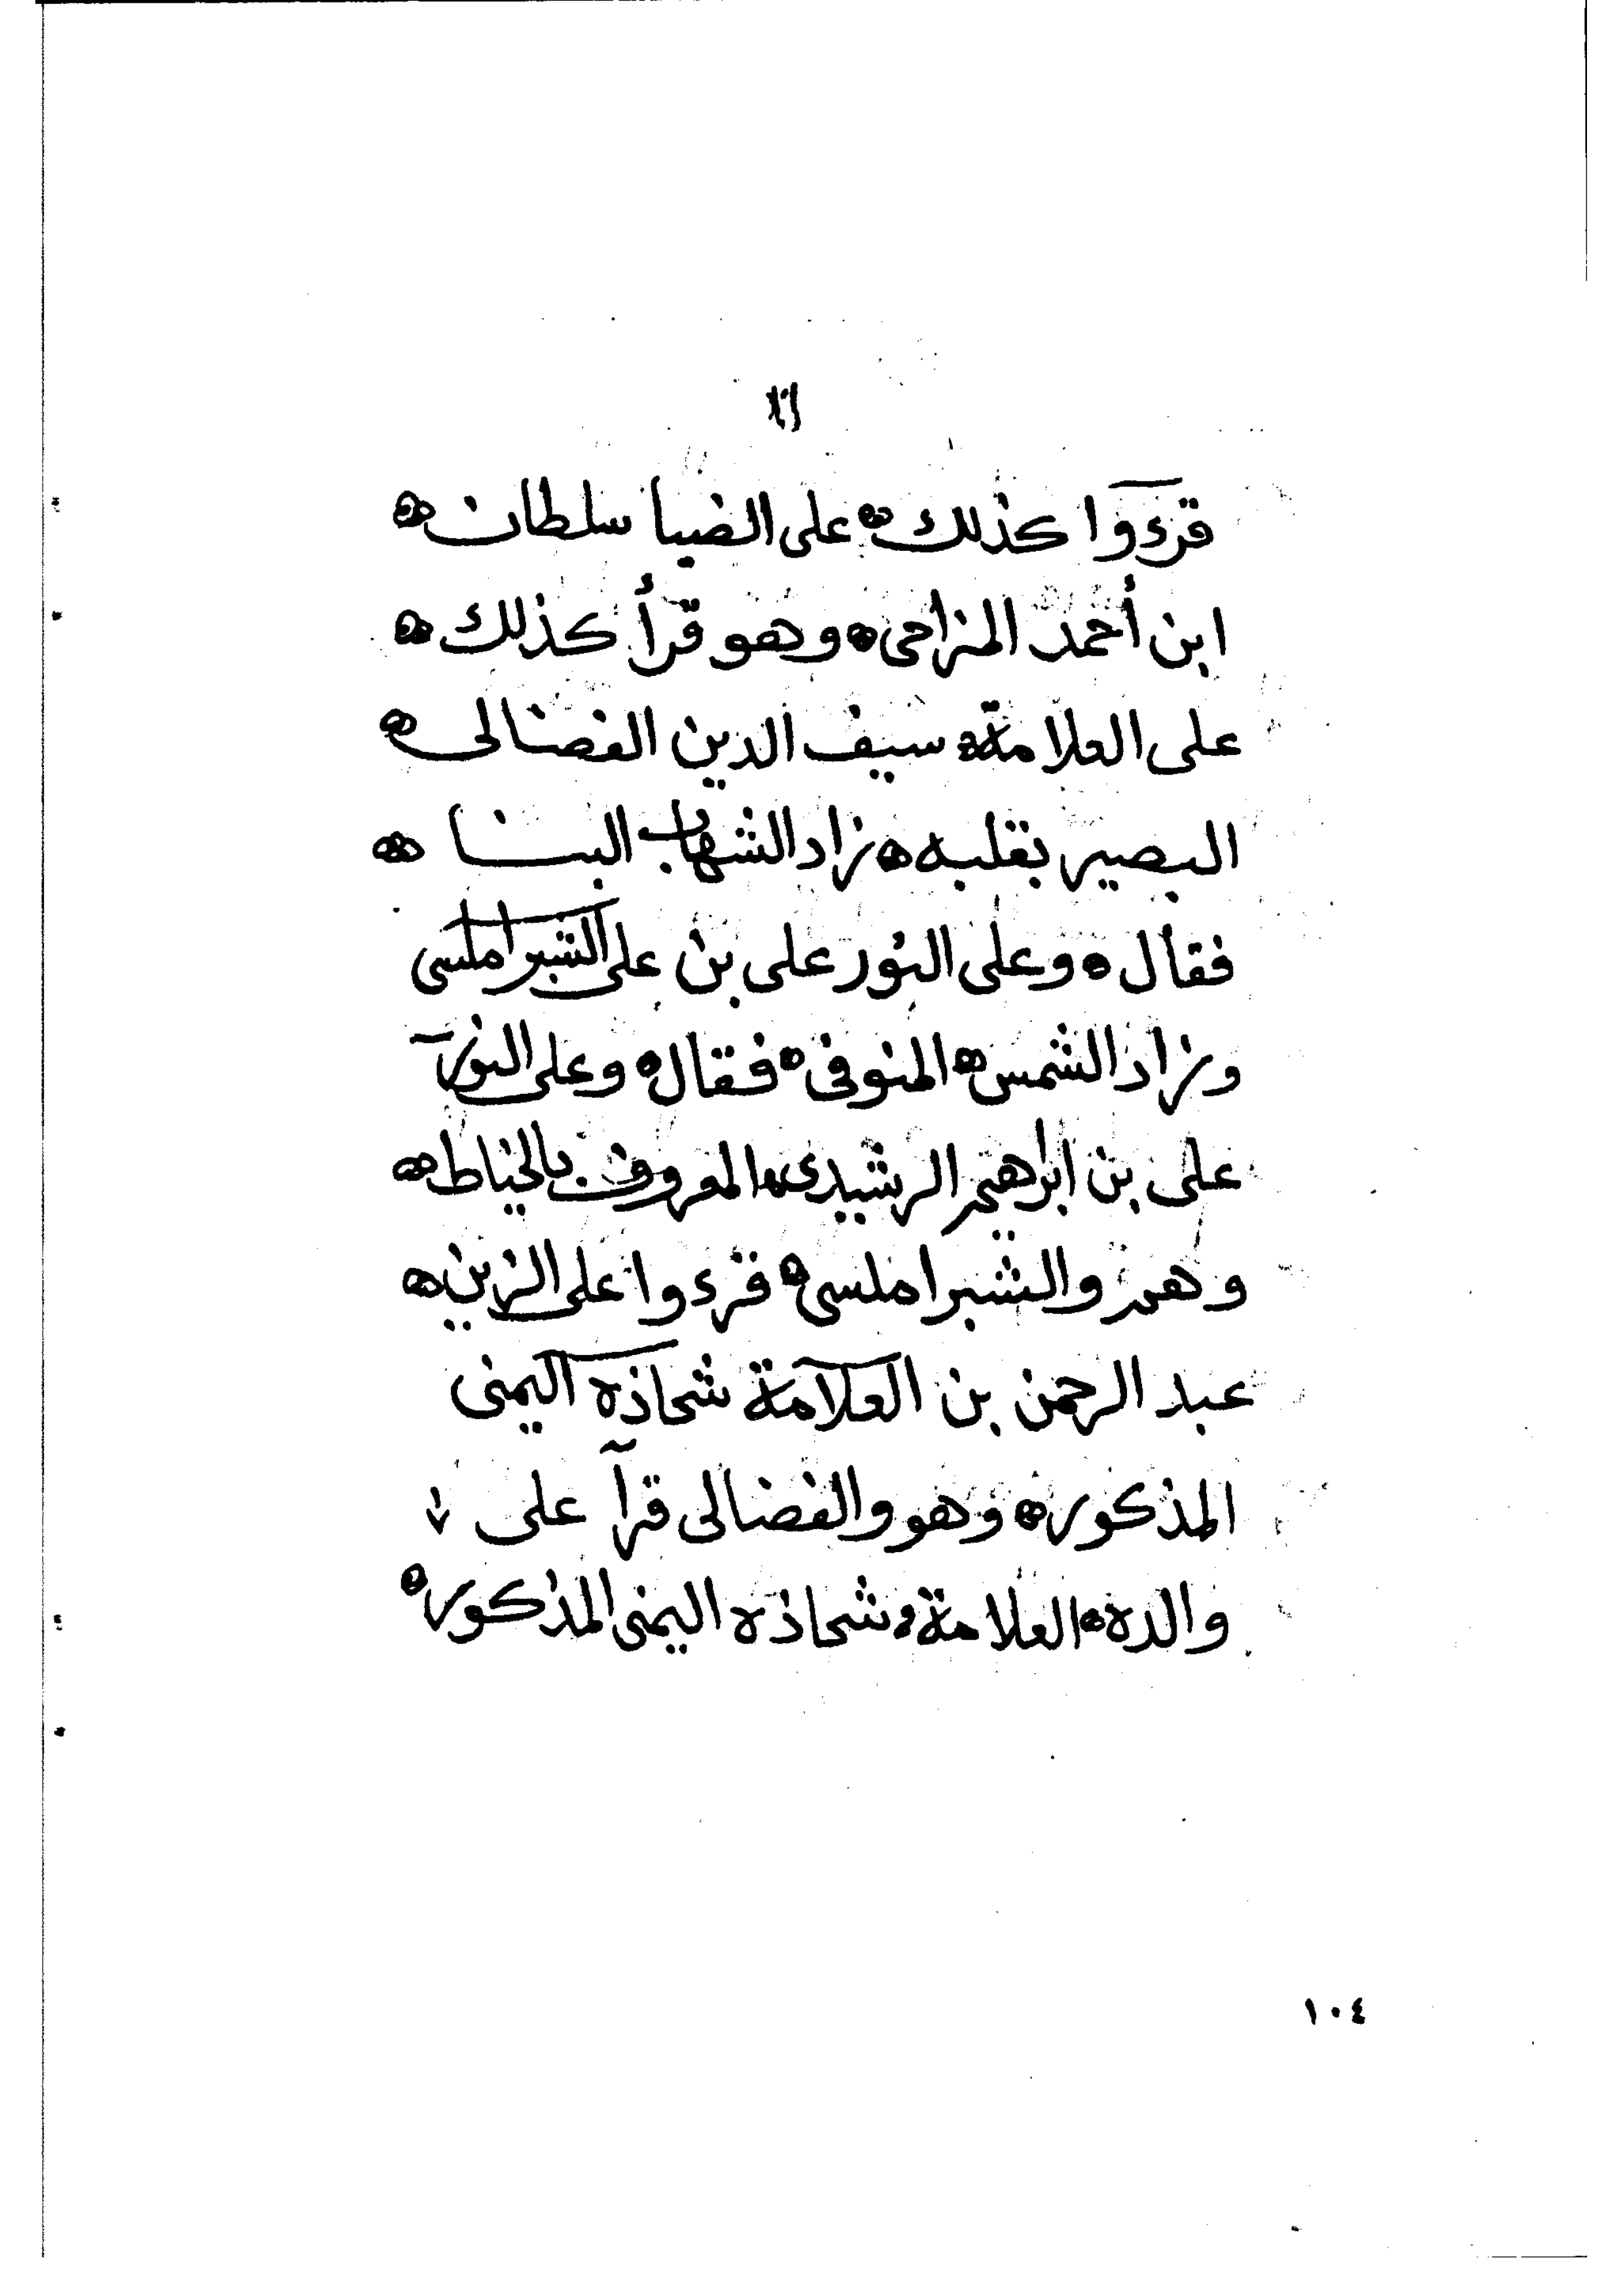 قرءوا كذلك ه على الضيا سلطان ه
ابن أحمد المزاحى ه وهو قرأ كذلك ه
على العلامة سيف الدين الفضالى ه
البصير بقلبه ه زاد الشهاب البنا ه
فقال ه وعلى النور على بن على الشبراملسى
وزاد الشمس ه المنوفى ه فقال ه وعلى النور
على بن ابراهيم الرشيدى ه المعروف بالخياط ه
وهم والشبراملسى ه قرءوا على الزين ه
عبد الرحمن بن العلامة شحاذه اليمنى
المذكور ه وهو والفضالى قرآ على
والده ه العلامة ه شحاذه اليمنى المذكور ه
١٠٤